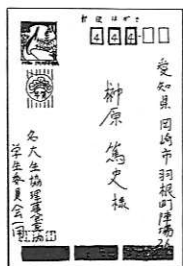 郵便はがき
444
愛知県岡崎市羽根町陣場
榊原篤史様
名大生協理事会
学生委員会